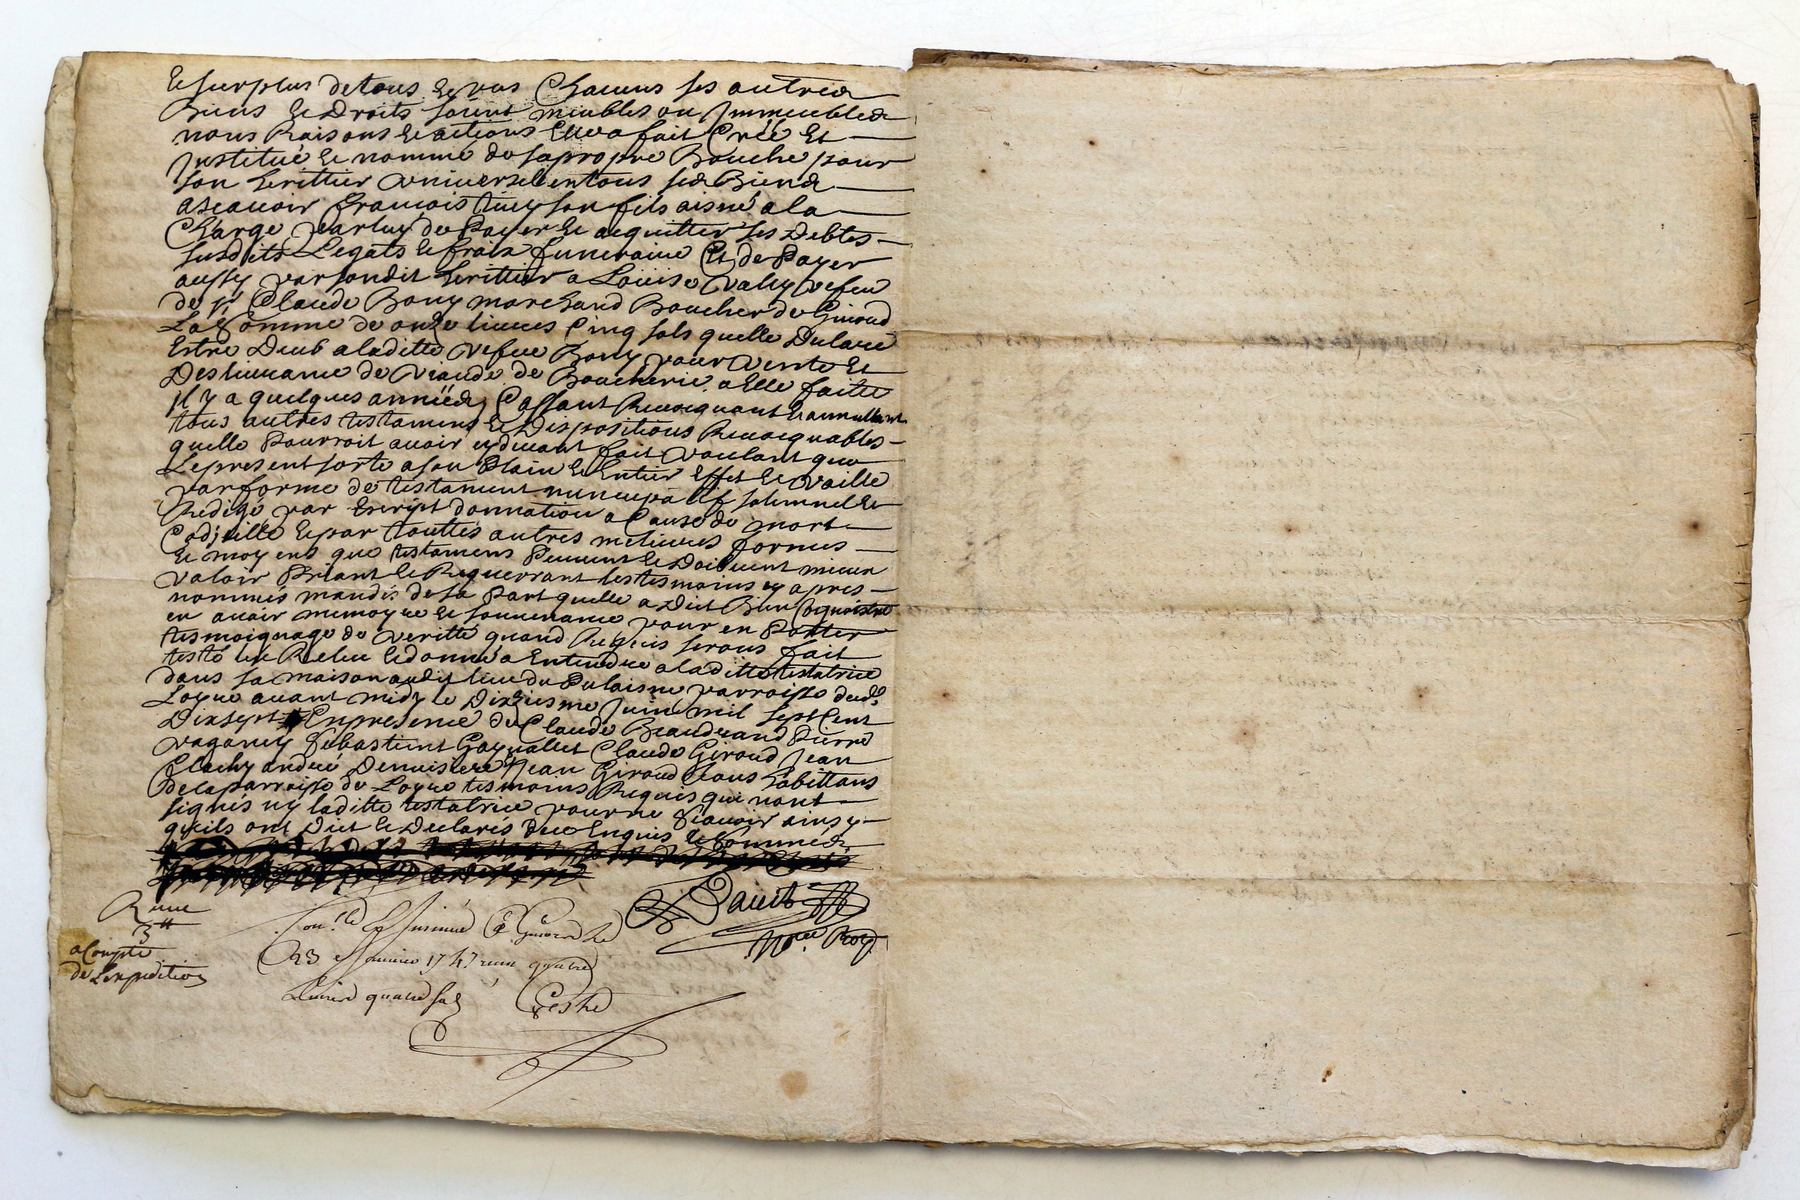 Le surplus de tous et un Chacuns ses autres
Biens et Droits soient meubles ou Immeubles
noms Raisons et actions Elle a fait Créé Et
Institué et nommé de sa propre Bouche pour
son herittier Universel en tous ses Biens
ascauoir françois son fils aisné a la
Charge par luy de Payer et acquitter ses Debtes
susdits Legats et fraix funeraire Et de Payer
aussy par sondit herittier a Louise Valuy vefue
de Claude Bony marchand Boucher de
La Somme de onze liures Cinq sols quelle Declare
Estre Deub a laditte Vefue Bony pour Vente Et
Desliurance de Viande de Boucherie a Elle faitte
Il y a quelques années Cassant Reuocquant et annullant
tous autres testamens et Dispositions Reuocquables
quelle Pourroit auoir cydeuant fait Voulant que
Le present sorte a son Plain et Entier Effet et vaille
par forme de testament nuncupatif solemnel et
Redigé par Escript donnation a Cause de mort
Codicille et par touttes autres melieures formes
et moyens que testamens Peuuent et Doibuent mieux
valoir Priant et Requerrant les tesmoins cy apres
nommés mandés de sa Part quelle a Dict Bien Cognoistre
en auoir memoyre et souuenance pour en Porter
tesmoignage de verité quand Requis serons fait
testé leu Releu et donné a Entendre a laditte testatrice
dans sa maison audit lieu du parroisse dud.
Loyre auant midy le Dixiesme Juin mil sept Cent
Dixsept En presence de Claude Beaudrand Pierre
Sebastient Claude Giroud Jean
Clachy andré Jean Giroud tous habittans
de la parroisse de Loyre tesmoins Requis qui nont
signés ny laditte testatrice pour ne sçauoir ainsy
quils ont Dict et Declarés de ce Enquis et sommés
David
Nre. Roy.
Receu
3 tt
a Compte
de L'expedition
Con.lé Et Insinué
23 Janvier 174. receu quatre
Liures quatre sols